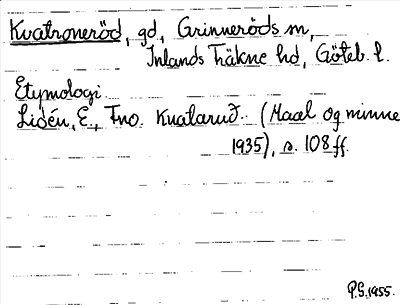 Kvatroneröd, gd, Grinneröds sn,
Inlands Fräkne hd, Göteb. l.
Etymologi
Lidén, E., Fno. Kvatarud. (Maal og minne
1935), s. 108 ff.
P.G. 1955.